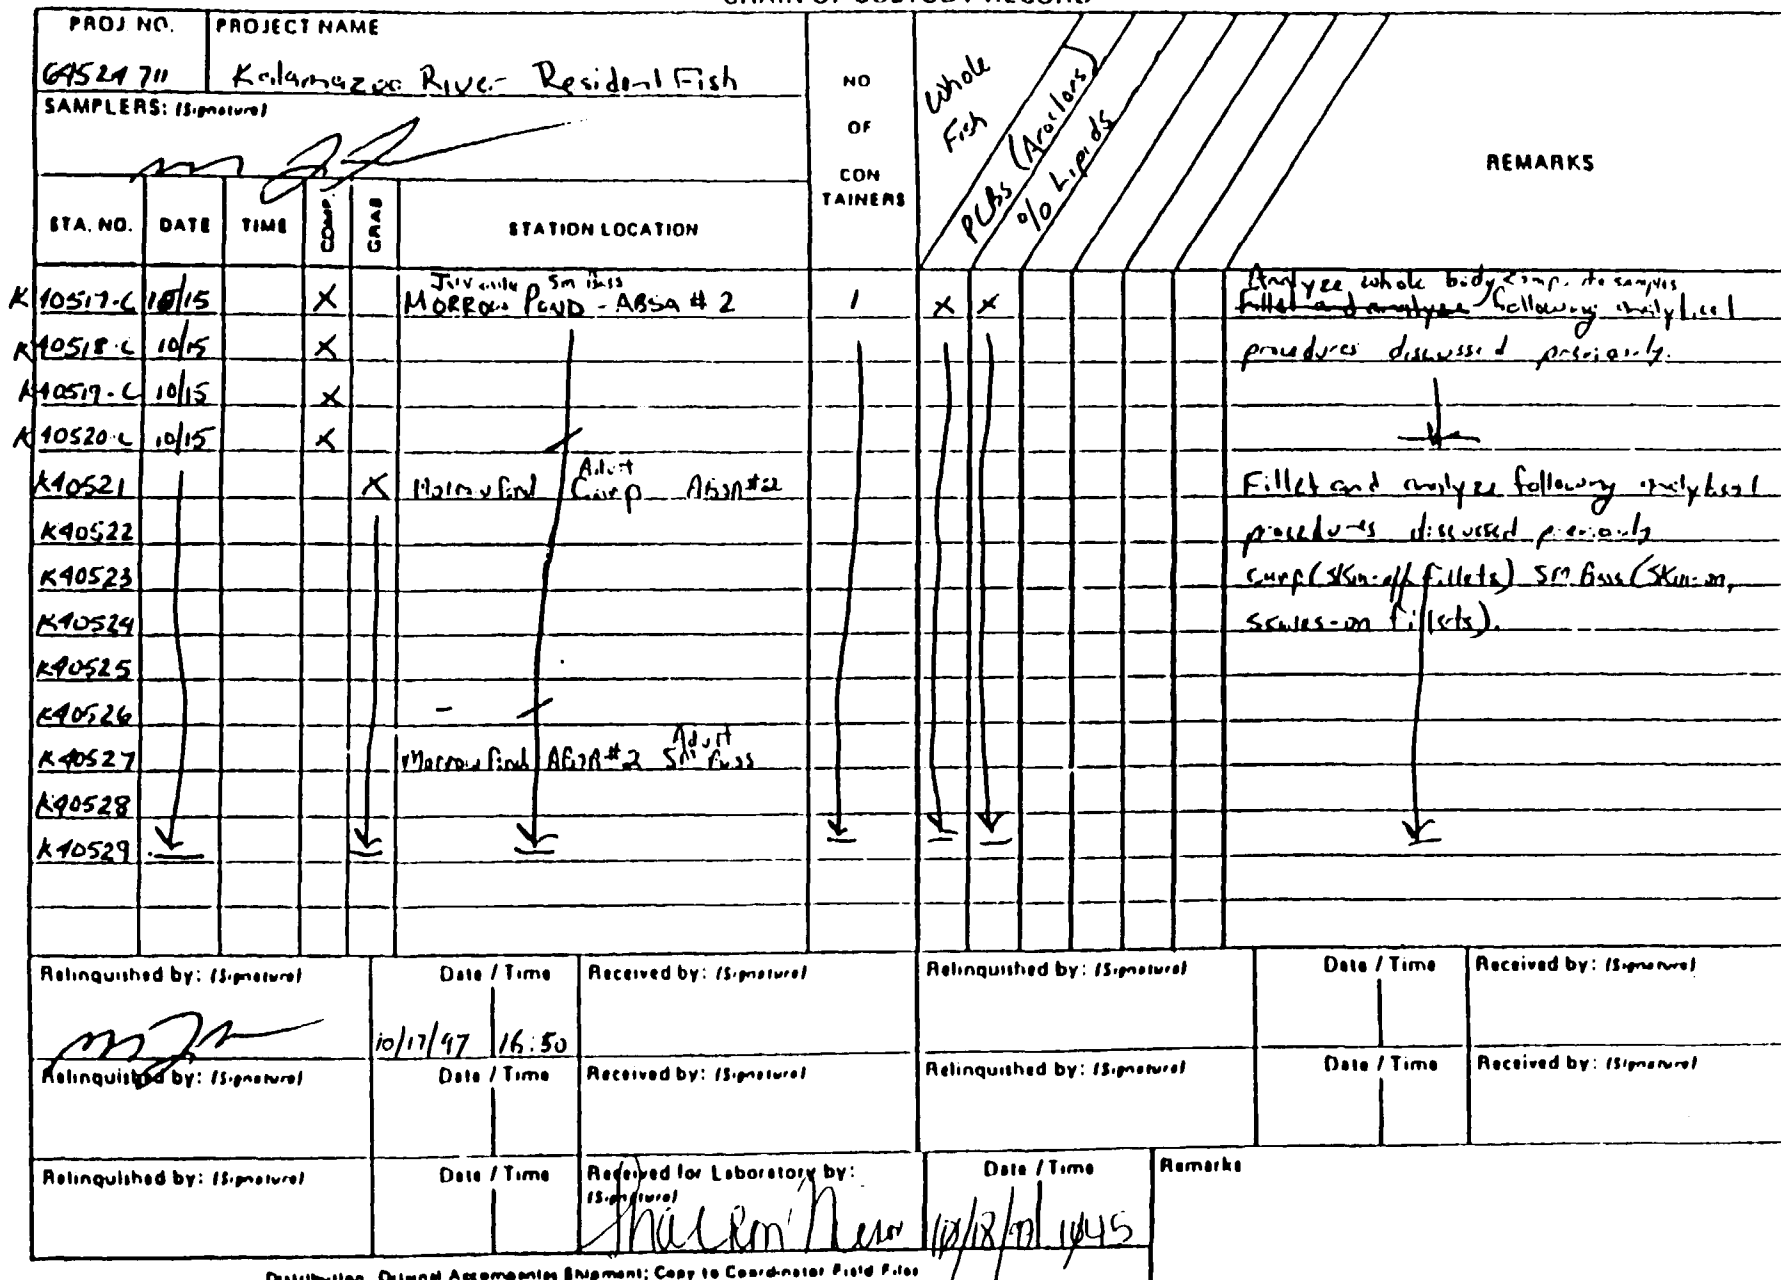 CHAIN OF CUSTODY RECORD
PROJ NO. PROJECT NAME
64524 711 Kalamazoo River Resident Fish
SAMPLERS: (Signature)
NO OF CONTAINERS
Whole Fish
PCBs (Aroclors)
% Lipids
REMARKS
STA. NO. DATE TIME COMP. GRAB STATION LOCATION
Juvenile Sm Bass
K40517-C 10/15 X MORROW POND - ABSA # 2 1 X X
Analyze whole body composite samples
Fillet and analyze following analytical
K40518-C 10/15 X procedures discussed previously.
K40519-C 10/15 X
K40520-C 10/15 X
K40521 X Morrow Pond Adult Carp ABSA #2 Fillet and analyze following analytical
K40522 procedures discussed previously
K40523 carp (skin-off fillets) SM Bass (skin-on,
K40524 scales-on fillets).
K40525
K40526 -
K40527 Morrow Pond ABSA #2 Adult Sm Bass
K40528
K40529
Relinquished by: (Signature) Date / Time Received by: (Signature) Relinquished by: (Signature) Date / Time Received by: (Signature)
10/17/97 16:50
Relinquished by: (Signature) Date / Time Received by: (Signature) Relinquished by: (Signature) Date / Time Received by: (Signature)
Relinquished by: (Signature) Date / Time Received for Laboratory by: (Signature) Date / Time Remarks
10/18/97 1045
Distribution: Original Accompanies Shipment; Copy to Coordinator Field Files